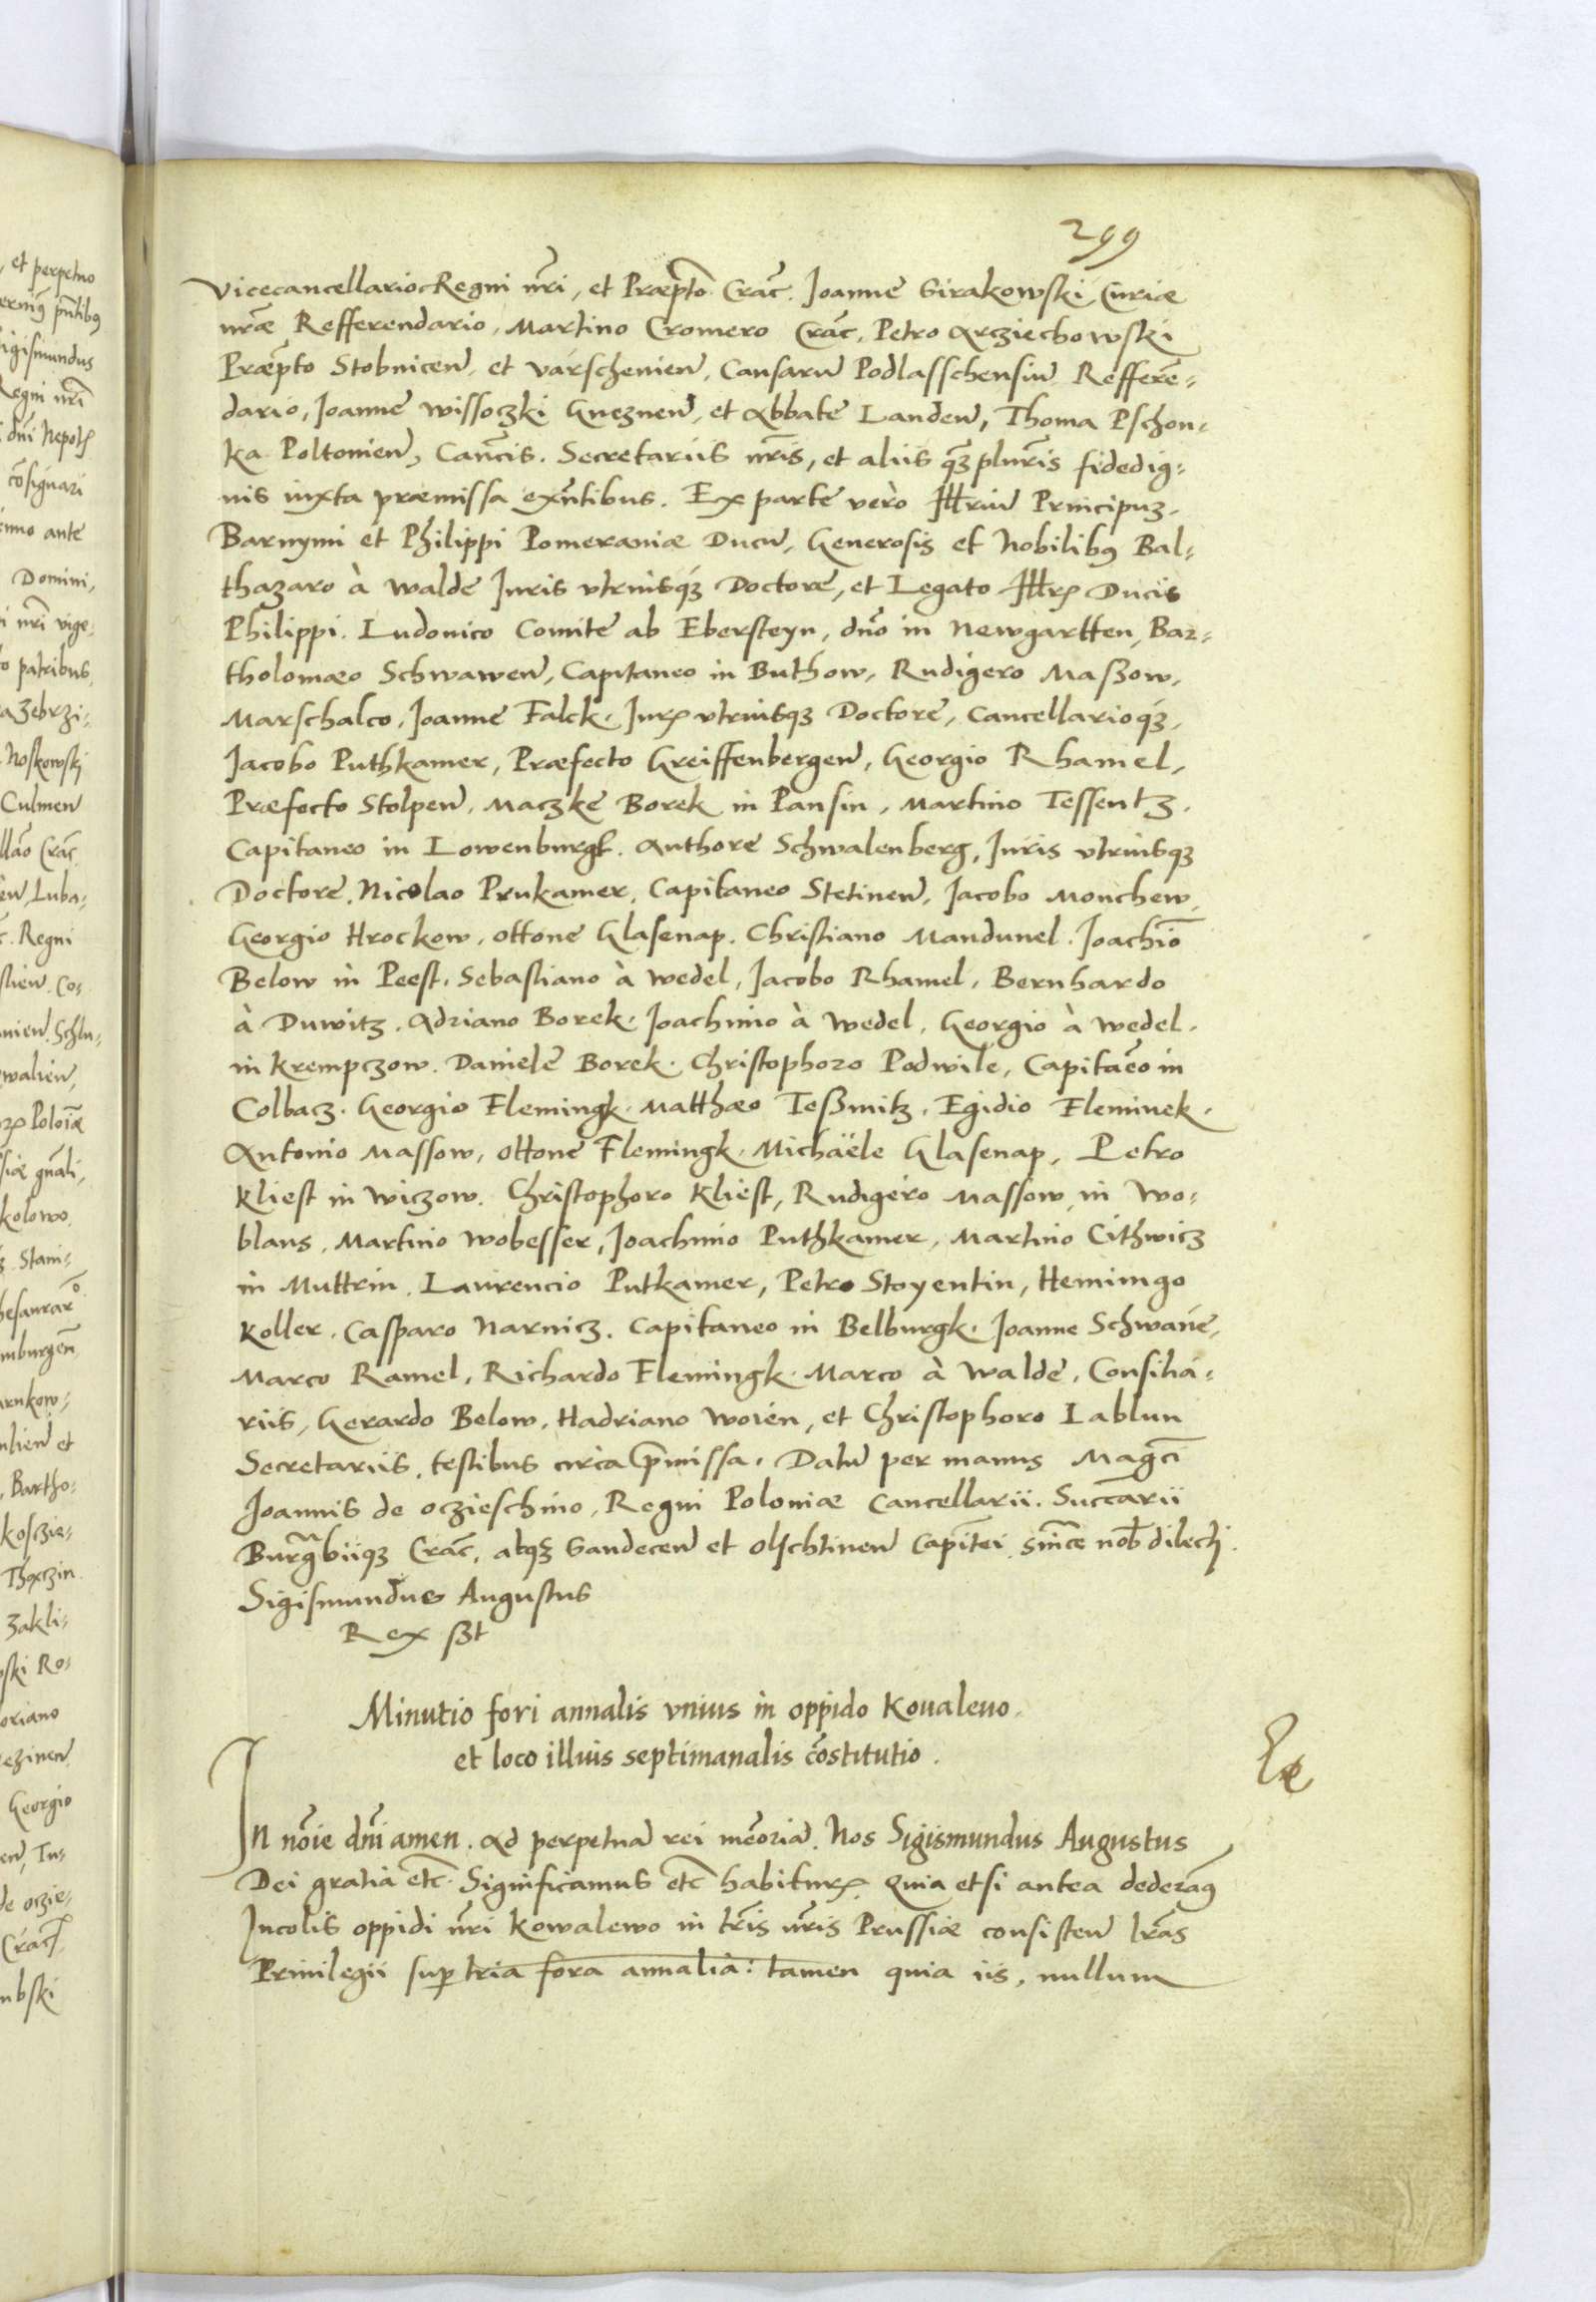 299
Vicecancellario Regni nri, et Præpto Crac. Joanne Sirakowski, Curiæ
nræ Refferendario, Martino Cromero Crac, Petro Arcziechowski
Præpto Stobnicen, et Varschenien, Causaru Podlasschensiu Refferē-
dario, Joanne Wissoczki Gneznen, et Abbate Landen, Thoma Pschon-
ka Poltonien, Cancis. Secretariis nris, et aliis qȝ pluris fidedig-
nis iuxta præmissa exntibus. Ex parte vero Illriu Principuȝ.
Barnymi et Philippi Pomeraniæ Ducu, Generosis et Nobilibꝯ Bal-
thazaro à Walde Juris vtriusqȝ Doctore, et Legato Illrꝭ Ducis
Philippi. Ludouico Comite ab Ebersteyn, dno in Newgartten, Bar-
tholomæo Schwawen, Capitaneo in Buthow, Rudigero Maßow,
Marschalco, Joanne Falck. Jurꝭ vtriusqȝ Doctore, Cancellarioqȝ,
Jacobo Puthkamer, Præfecto Greiffenbergen, Georgio Rhamel,
Præfecto Stolpen, Maczke Borek in Pansin, Martino Tessentz.
Capitaneo in Lowenburgk. Anthore Schwalenberg, Juris vtriusqȝ
Doctore, Nicolao Prukamer, Capitaneo Stetinen, Jacobo Monchew,
Georgio Hrockow, Ottone Glasenap. Christiano Mandunel. Joachio
Below in Peest. Sebastiano à Wedel, Jacobo Rhamel, Bernhardo
à Duwitz. Adriano Borek. Joachimo à Wedel, Georgio à Wedel.
in Krempczow. Daniele Borek. Christophoro Podwile, Capitaeo in
Colbacz. Georgio Flemingk. Matthæo Teßmitz. Egidio Fleminek.
Antonio Massow, Ottone Flemingk. Michaële Glasenap, Petro
Kliest in Wiczow. Christophoro Kliest, Rudigero Massow, in Wo-
blans, Martino Wobesser, Joachimo Puthkamer, Martino Cithwicz
in Muttrin, Laurencio Putkamer, Petro Stoyentin, Hemimgo
Koller. Casparo Narnicz. Capitaneo in Belburgk. Joanne Schwane,
Marco Ramel, Richardo Flemingk. Marco à Walde, Consilia-
riis, Gerardo Below, Hadriano Woien, et Christophoro Lablun
Secretariis, testibus circa pmissa. Datu per manus Magci
Joannis de Oczieschino, Regni Poloniæ Cancellarii. Succarii
Burgbiiqȝ Crac, atqȝ Sandecen et Olschtinen Capitei, since nob dilecti.
Sigismundus Augustus
Rex sst
Minutio fori annalis vnius in oppido Koualeuo.
et loco illius septimanalis costitutio.
In noie dni amen. Ad perpetua rei meoria. Nos Sigismundus Augustus
Dei gratia etc. Significamus etc habiturꝭ. Quia etsi antea dederaꝯ
Incolis oppidi nri Kowalewo in tris nris Prussiæ consisten lras
Priuilegii sup tria fora annalia: tamen quia iis, nullum